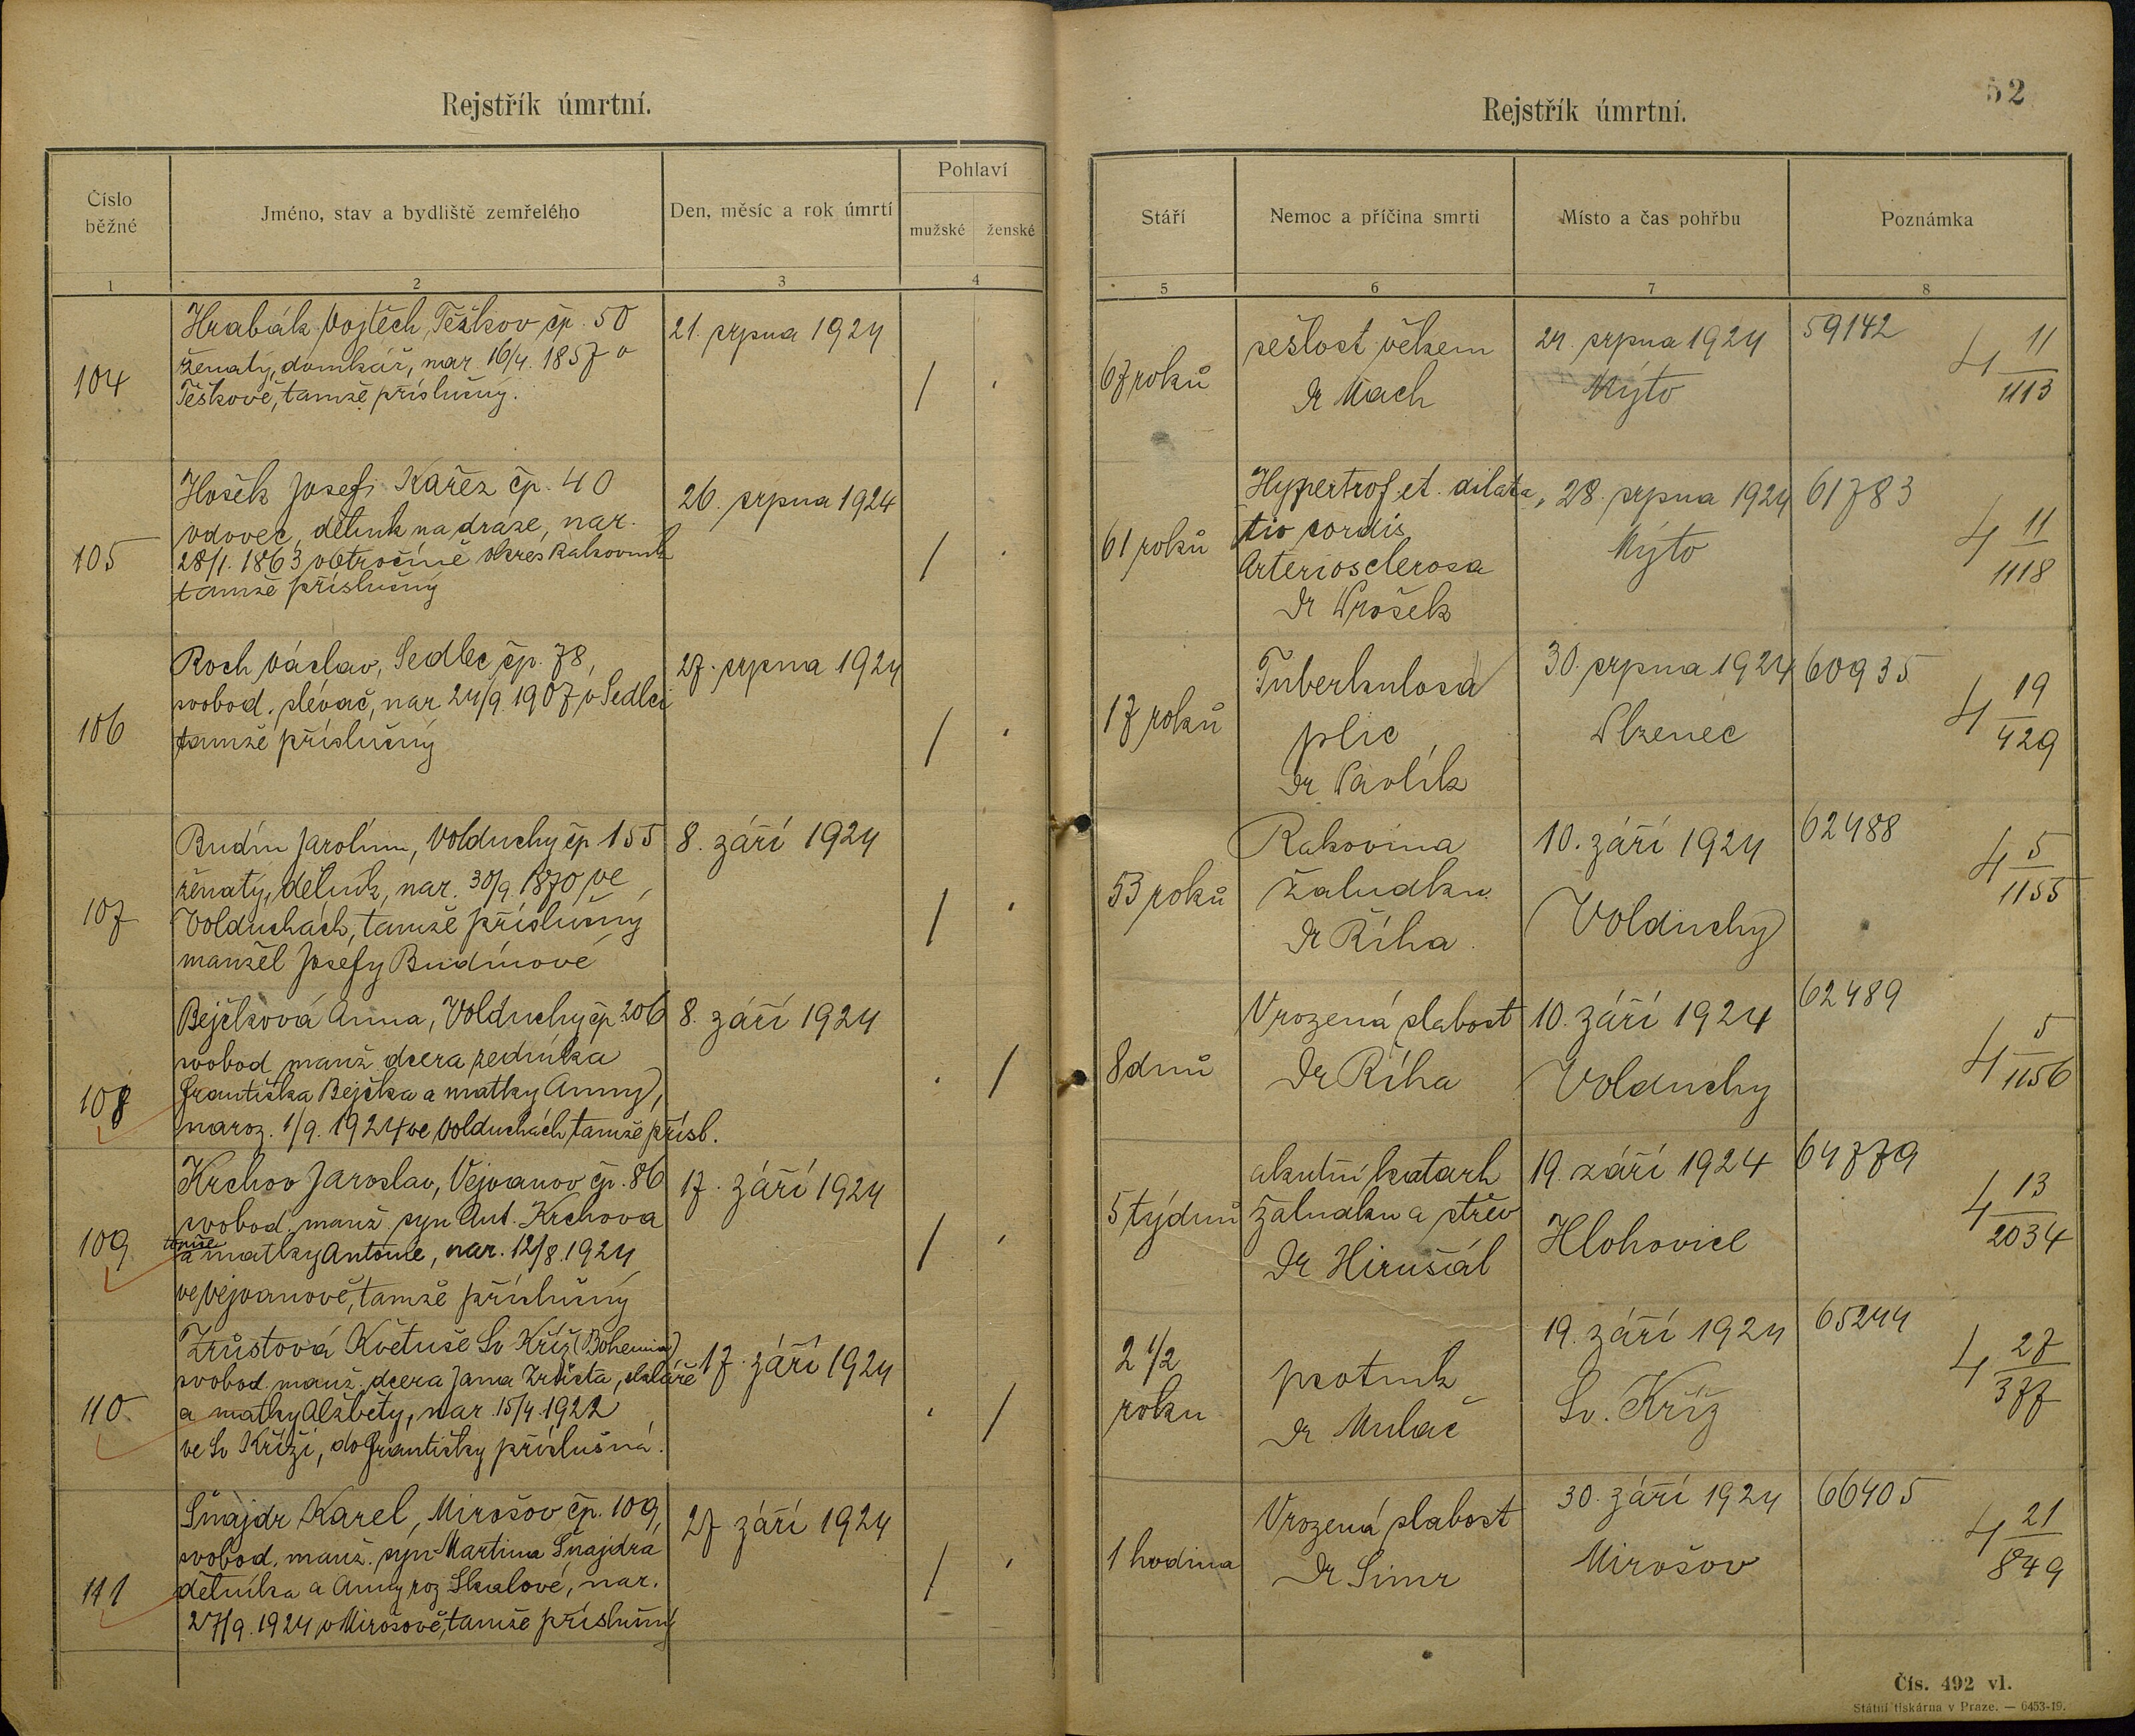 Rejstřík úmrtní.
Číslo běžné
Jméno, stav a bydliště zemřelého
Den, měsíc a rok úmrtí
Pohlaví
mužské
ženské
1
2
3
4
104
Hrabák Vojtěch, Těškov čp. 50
ženatý, domkář, nar. 16/4. 1857 v
Těškově, tamže příslušný.
21. srpna 1924
/
105
Hošek Josef, Kařez čp. 40
vdovec, dělník na dráze, nar.
28/1. 1863 v Otročíně okres Rakovník
tamže příslušný
26. srpna 1924
/
106
Roch Václav, Sedlec čp. 78,
svobod. slévač, nar 24/9. 1907 v Sedlci
tamže příslušný
27. srpna 1924
/
107
Budín Jarolím, Volduchy čp 155
ženatý, dělník, nar. 30/9. 1870 ve
Volduchách, tamže příslušný
manžel Josefy Budínové
8. září 1924
/
108
Bejčková Anna, Volduchy čp 206
svobod manž dcera zedníka
Františka Bejčka a matky Anny,
naroz. 1/9. 1924 ve Volduchách tamže přísl.
8. září 1924
/
109
Krchov Jaroslav, Vejvanov čp. 86
svobod. manž. syn Ant. Krchova
tamže
a matky Antonie, nar. 12/8. 1924
ve Vejvanově, tamže příslušný
17. září 1924
/
110
Zrůstová Květuše Sv Kříž (Bohemia)
svobod. manž. dcera Jana Zrůsta, skláře
a matky Alžběty, nar. 15/4. 1922
ve Sv Kříži, do Františky příslušná.
17. září 1924
/
111
Šnajdr Karel, Mirošov čp. 109,
svobod. manž. syn Martina Šnajdra
dělníka a Anny roz Skalové, nar.
27/9. 1924 v Mirošově, tamže příslušný
27 září 1924
/
52
Rejstřík úmrtní.
Stáří
Nemoc a příčina smrti
Místo a čas pohřbu
Poznámka
5
6
7
8
67 roků
sešlost věkem
Dr Mach
24. srpna 1924
Mýto
59142
4 11/1113
61 roků
Hypertrof. et. dilata,
tio cordis
Arteriosclerosa
Dr Wrošek
28. srpna 1924
Mýto
61783
4 11/1118
17 roků
Tuberkulosa
plic
Dr Pavlík
30. srpna 1924
Plzenec
60935
4 19/429
53 roků
Rakovina
žaludku
Dr Říha.
10. září 1924
Volduchy
62488
4 5/1155
8 dnů
Vrozená slabost
Dr Říha
10. září 1924
Volduchy
62489
4 5/1156
5 týdnů
akutní katarh
žaludku a střev
Dr Hirušál
19. září 1924
Hlohovice
64779
4 13/2034
2 1/2
roku
psotník
Dr Mulač
19. září 1924
Sv. Kříž
65244
4 27/377
1 hodina
Vrozená slabost
Dr Simr
30. září 1924
Mirošov
66405
4 21/849
Čís. 492 vl.
Státní tiskárna v Praze. — 6453-19.